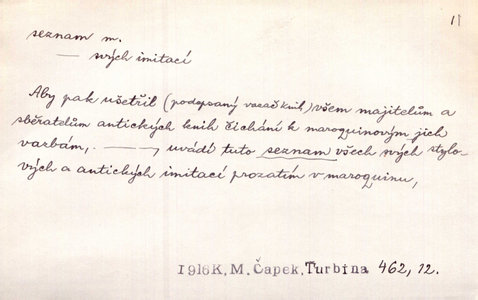 11
seznam m.
— svých imitací
Aby pak ušetřil (podepsaný vazač knih) všem majitelům a
sběratelům antických knih čichání k maroquinovým jich
vazbám, . —, uvádí tuto seznam všech svých stylo-
vých a antických imitací prozatím v maroquinu,
1916K, M. Čapek, Turbina 462, 12.